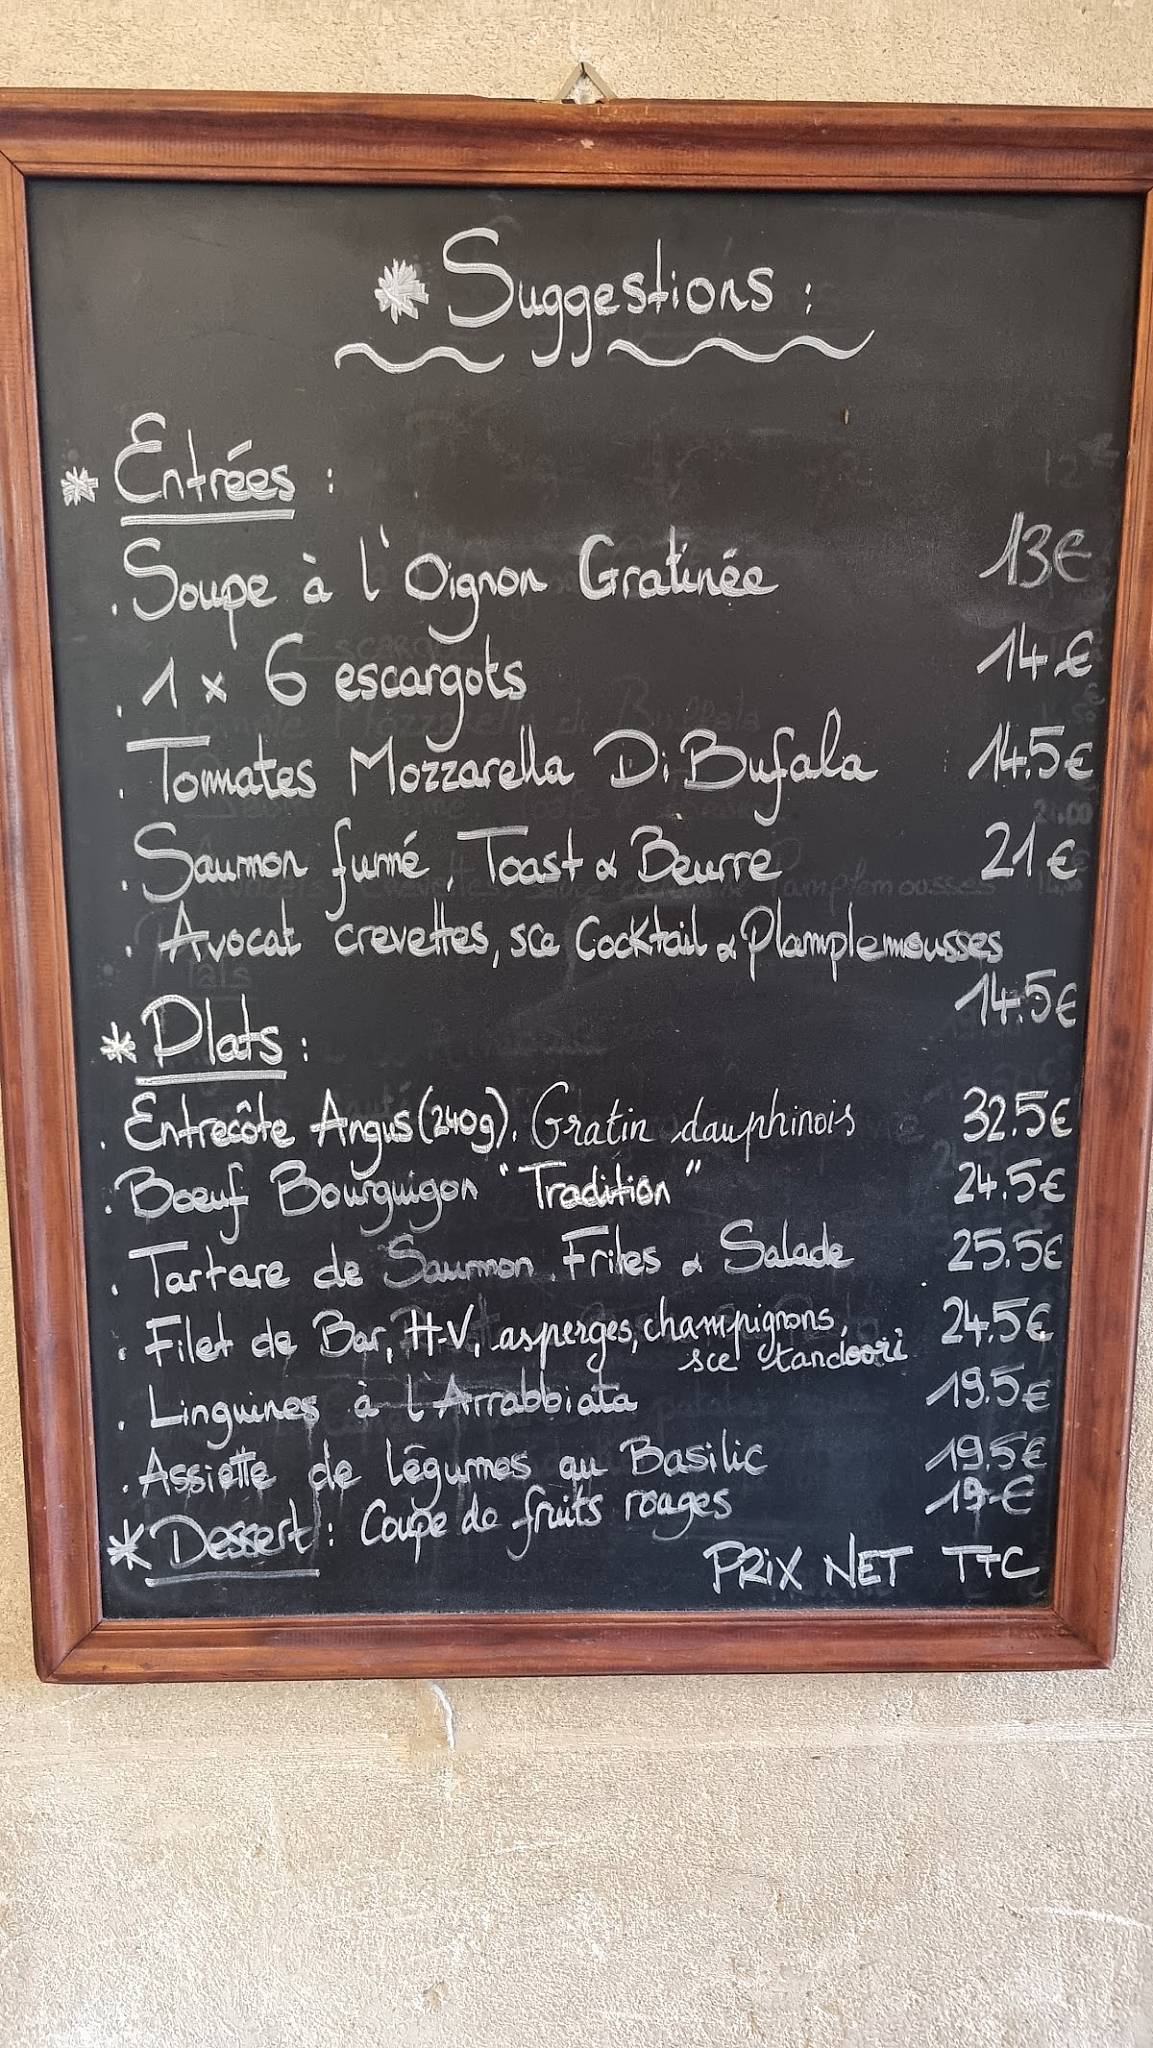 * Suggestions :
* Entrées :
. Soupe à l'Oignon Gratinée 13€
. 1 x 6 escargots 14€
. Tomates Mozzarella Di Bufala 14.5€
. Saumon fumé, Toast & Beurre 21€
. Avocat crevettes, sce Cocktail & Plamplemousses
14.5€
* Plats :
. Entrecôte Angus (240g). Gratin dauphinois 32.5€
. Bœuf Bourguigon "Tradition" 24.5€
. Tartare de Saumon. Frites & Salade 25.5€
. Filet de Bar, H-V, asperges, champignons, 24.5€
sce tandoori
. Linguines à l'Arrabbiata 19.5€
. Assiette de légumes au Basilic 19.5€
* Dessert : Coupe de fruits rouges 19-€
PRIX NET TTC